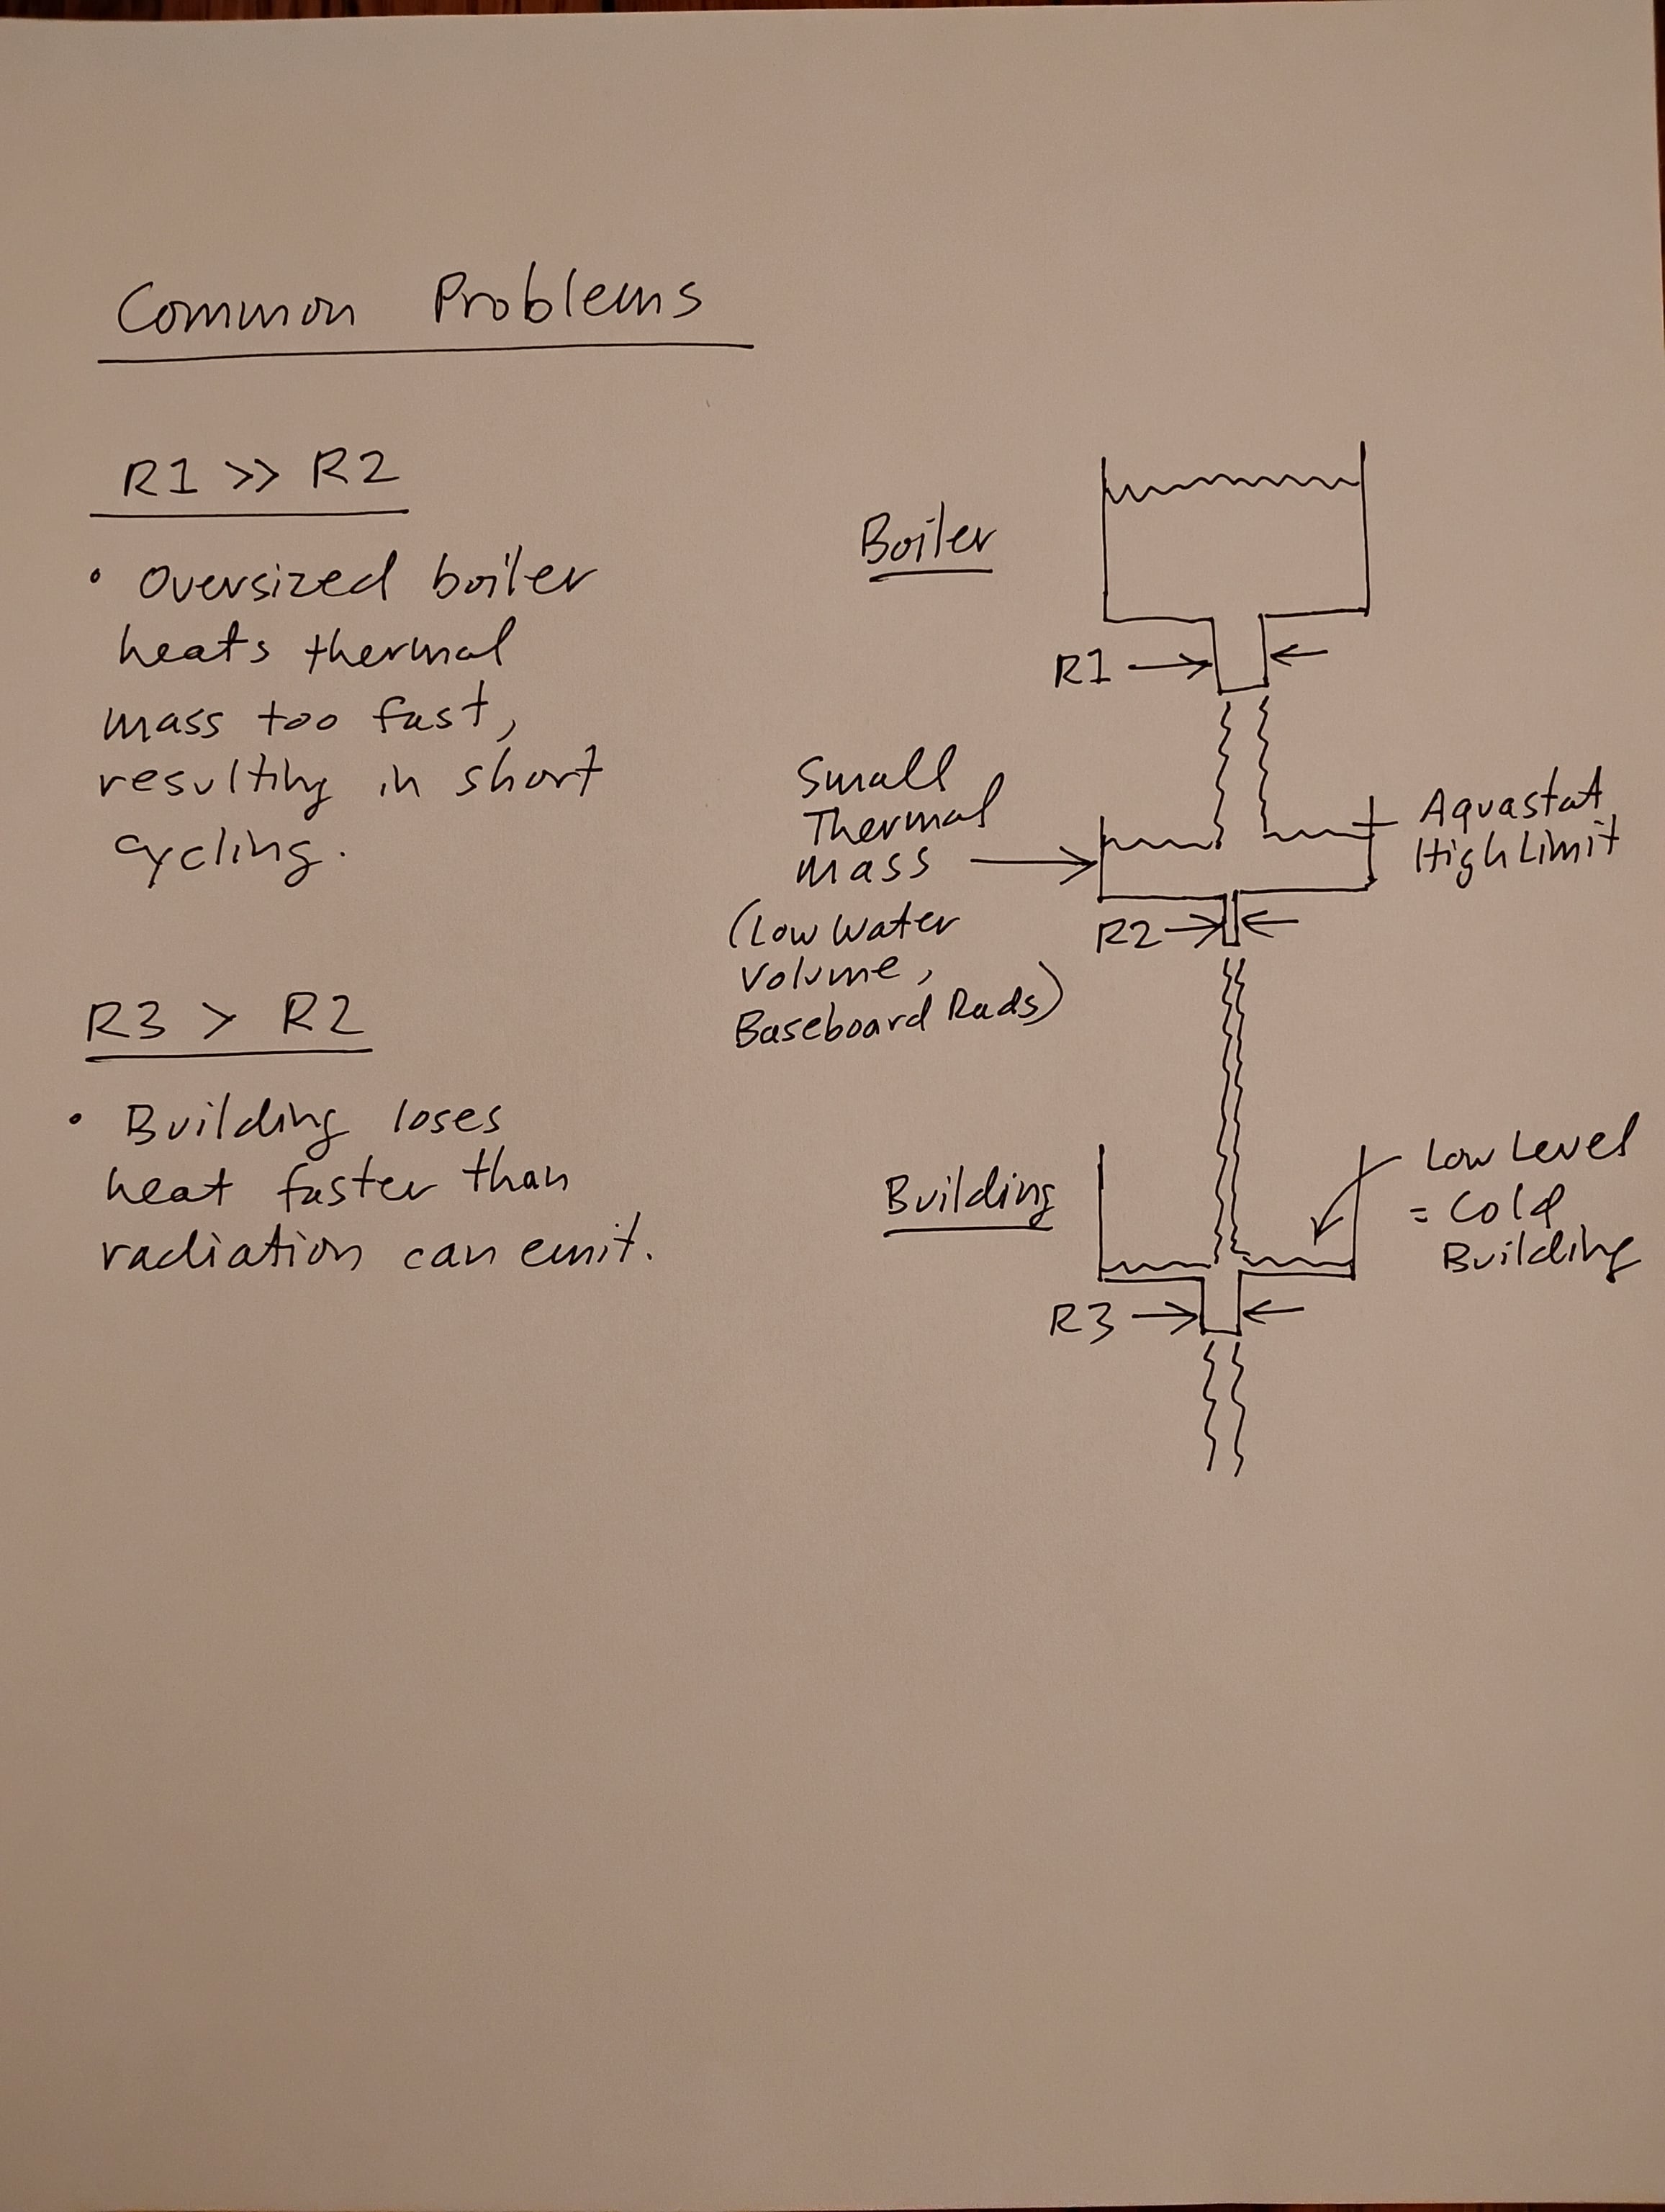 Common Problems
R1 >> R2
• Oversized boiler
heats thermal
mass too fast,
resulting in short
cycling.
R3 > R2
• Building loses
heat faster than
radiation can emit.
Boiler
R1
Small
Thermal
Mass
(Low Water
Volume,
Baseboard Rads)
Aquastat
High Limit
R2
Building
Low Level
= Cold
Building
R3